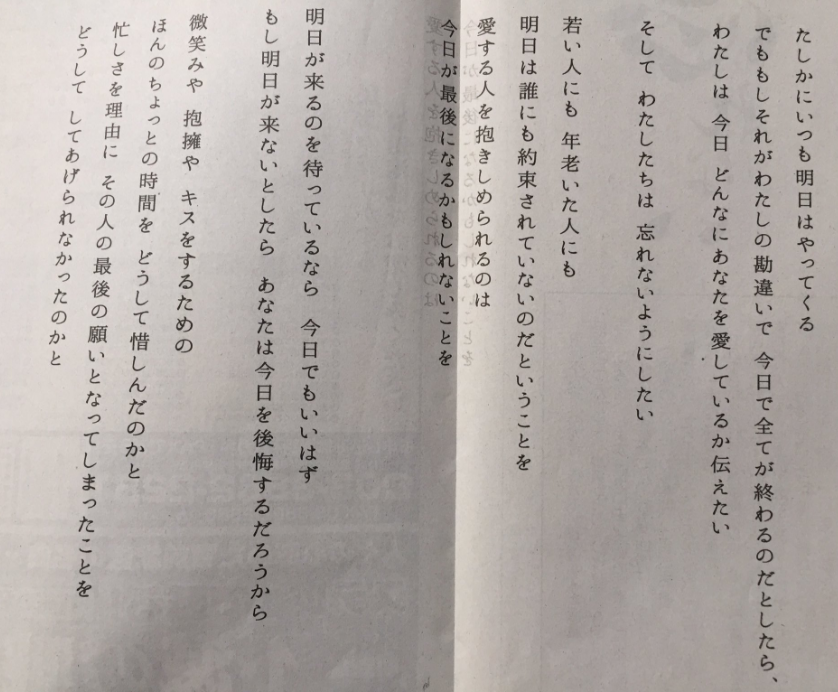 たしかにいつも明日はやってくる
でももしそれがわたしの勘違いで 今日で全てが終わるのだとしたら、
わたしは 今日 どんなにあなたを愛しているか伝えたい
そして わたしたちは 忘れないようにしたい
若い人にも 年老いた人にも
明日は誰にも約束されていないのだということを
愛する人を抱きしめられるのは
今日が最後になるかもしれないことを
明日が来るのを待っているなら 今日でもいいはず
もし明日が来ないとしたら あなたは今日を後悔するだろうから
微笑みや 抱擁や キスをするための
ほんのちょっとの時間を どうして惜しんだのかと
忙しさを理由に その人の最後の願いとなってしまったことを
どうして してあげられなかったのかと